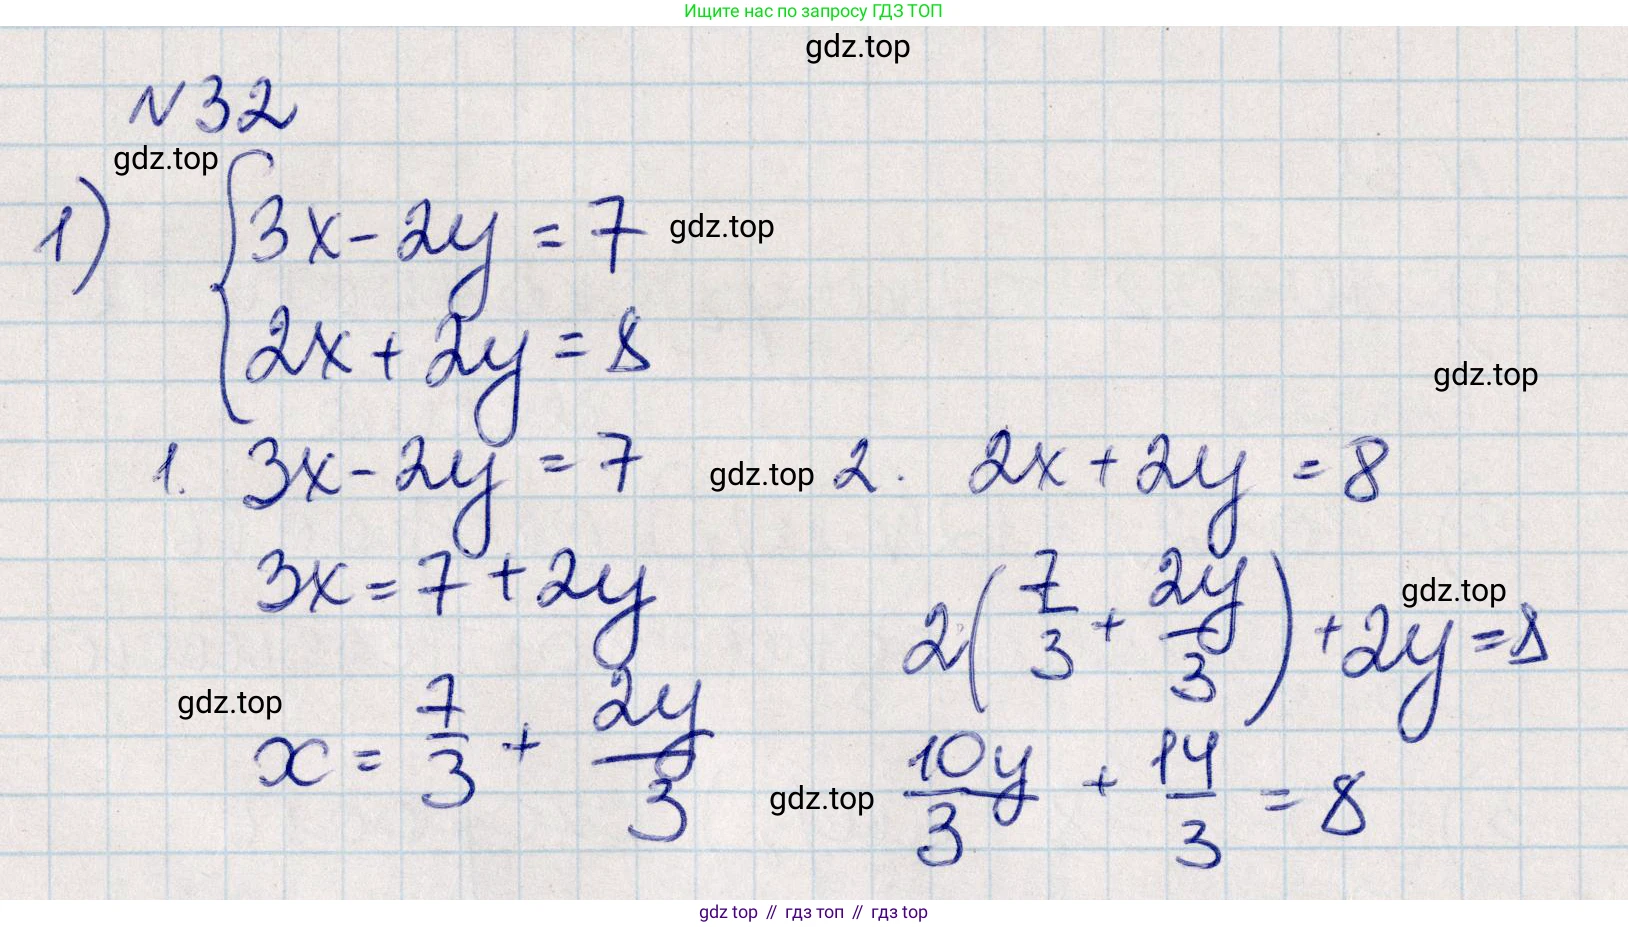 Ищите нас по запросу ГДЗ ТОП
gdz.top
N 32
gdz.top
1) { 3x - 2y = 7 gdz.top
2x + 2y = 8
gdz.top
1. 3x - 2y = 7 gdz.top 2. 2x + 2y = 8
3x = 7 + 2y 2(7/3 + 2y/3) + 2y = 8 gdz.top
gdz.top
x = 7/3 + 2y/3 gdz.top 10y/3 + 14/3 = 8
gdz top // гдз топ // гдз top